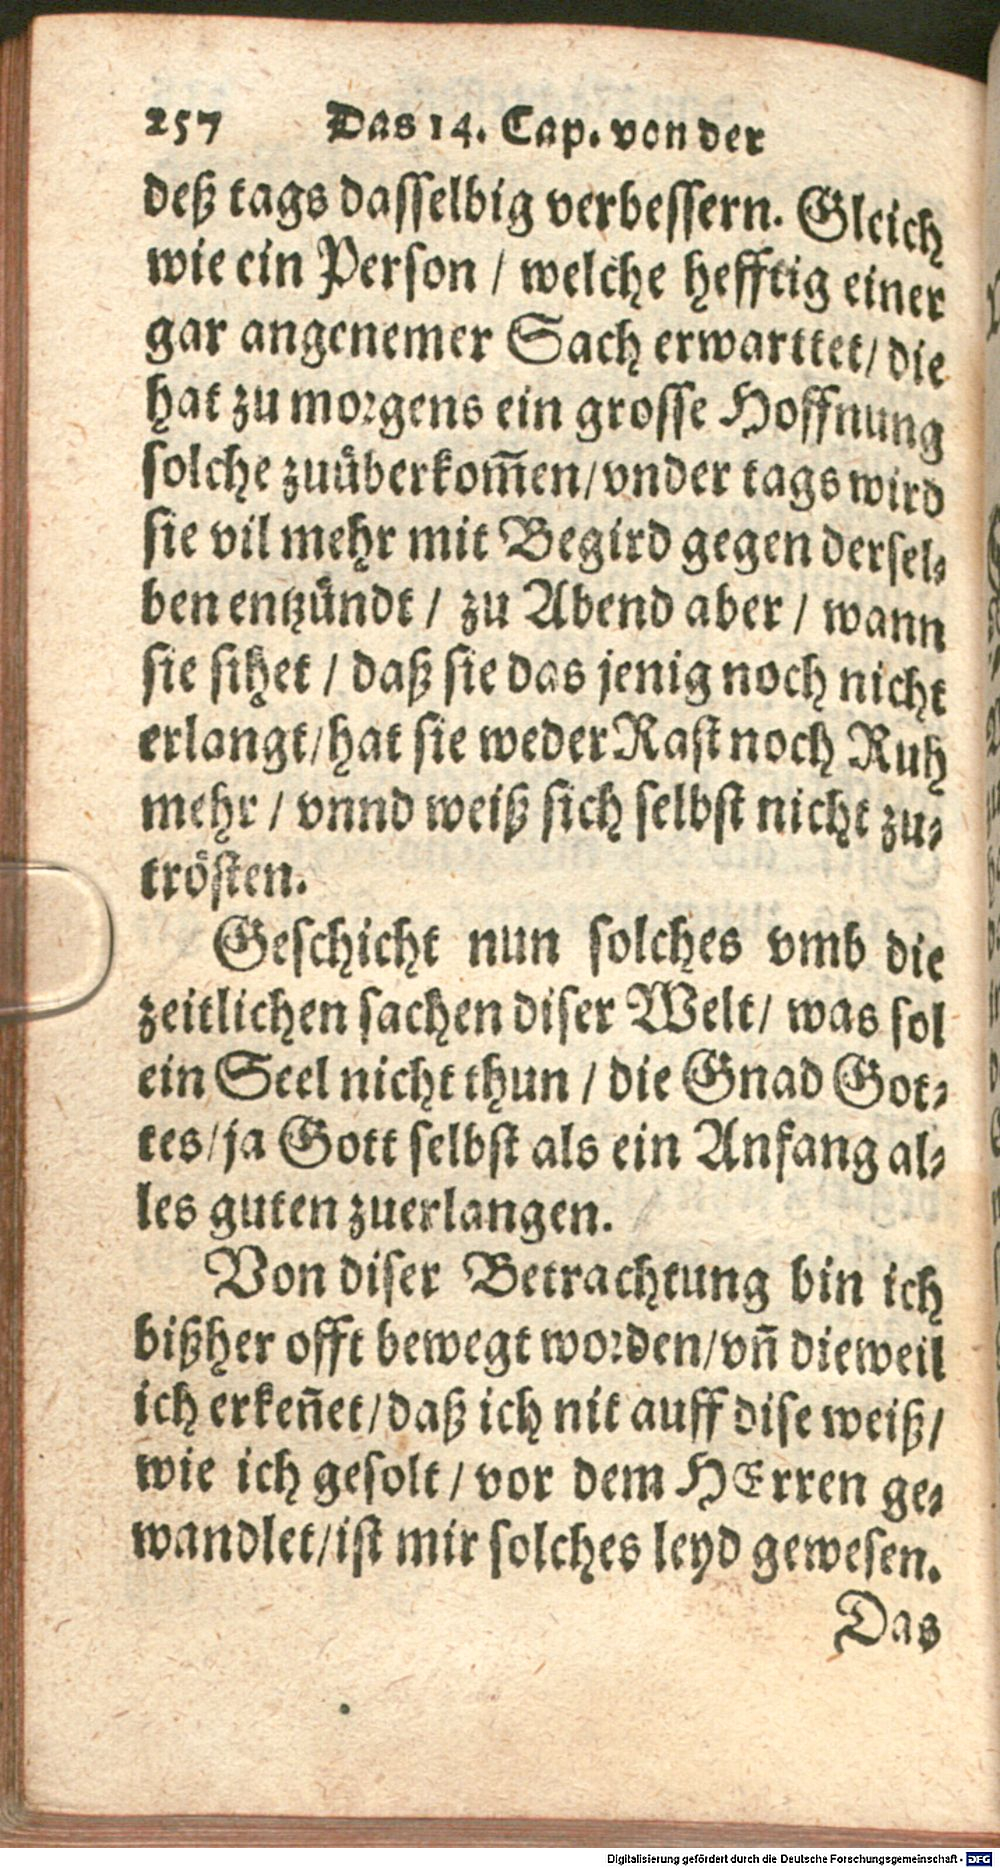 257 Das 14. Cap. von der
deß tags dasselbig verbessern. Gleich
wie ein Person / welche hefftig einer
gar angenemer Sach erwarttet / die
hat zu morgens ein grosse Hoffnung
solche zuüberkom̃en / vnder tags wird
sie vil mehr mit Begird gegen dersel⸗
ben entzündt / zu Abend aber / wann
sie sihet / daß sie das jenig noch nicht
erlangt / hat sie weder Rast noch Ruh
mehr / vnnd weiß sich selbst nicht zu⸗
trösten.
Geschicht nun solches vmb die
zeitlichen sachen diser Welt / was sol
ein Seel nicht thun / die Gnad Got⸗
tes / ja Gott selbst als ein Anfang al⸗
les guten zuerlangen.
Von diser Betrachtung bin ich
bißher offt bewegt worden / vñ dieweil
ich erkeñet / daß ich nit auff dise weiß /
wie ich gesolt / vor dem HErren ge⸗
wandlet / ist mir solches leyd gewesen.
Das
Digitalisierung gefördert durch die Deutsche Forschungsgemeinschaft - DFG